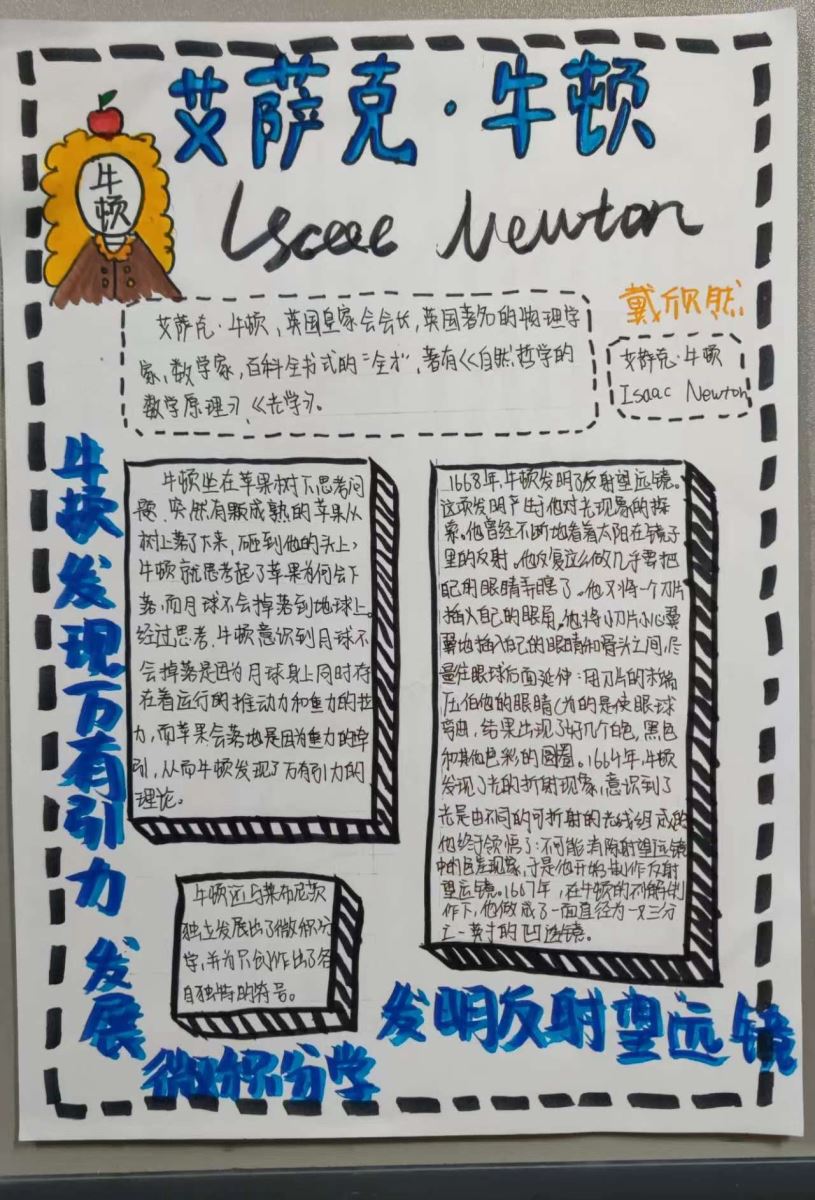 艾萨克·牛顿
牛顿
Isceac Newton
戴欣然
艾萨克·牛顿、英国皇家会会长，英国著名的物理学
家，数学家，百科全书式的"全才"，著有《自然哲学的
数学原理》、《光学》。
艾萨克·牛顿
Isaac Newton
牛顿发现万有引力
牛顿坐在苹果树下思考问
题，突然有颗成熟的苹果从
树上落了下来，砸到他的头上，
牛顿就思考起了苹果为何会下
落，而月球不会掉落到地球上。
经过思考，牛顿意识到月球不
会掉落是因为月球身上同时存
在着运行的推动力和重力的拉
力，而苹果会落地是因为重力的牵
引，从而牛顿发现了万有引力的
理论。
1668年，牛顿发明了反射望远镜。
这项发明产生于他对光现象的探
索。他曾经不断地看着太阳在镜子
里的反射。他反复这么做几乎要把
自己的眼睛弄瞎了。他又将一个刀片
插入自己的眼角。他将小刀片小心翼
翼地插入自己的眼睛和骨头之间，尽
量往眼球后面延伸：用刀片的末端
压迫他的眼睛（为的是使眼球
弯曲，结果出现了好几个白色，黑色
和其他色彩的圆圈。1664年，牛顿
发现了光的折射现象，意识到了
光是由不同的可折射的光线组成的
他终于领悟了：不可能消除射望远镜
中的色差现象，于是他开始制作反射
望远镜。1667年，在牛顿的不懈制
作下，他做成了一面直径为一又三分
之一英寸的凹透镜。
牛顿还与莱布尼茨
独立发展出了微积分
学，并为只创作出了各
自独特的符号。
发展
微积分学
发明反射望远镜